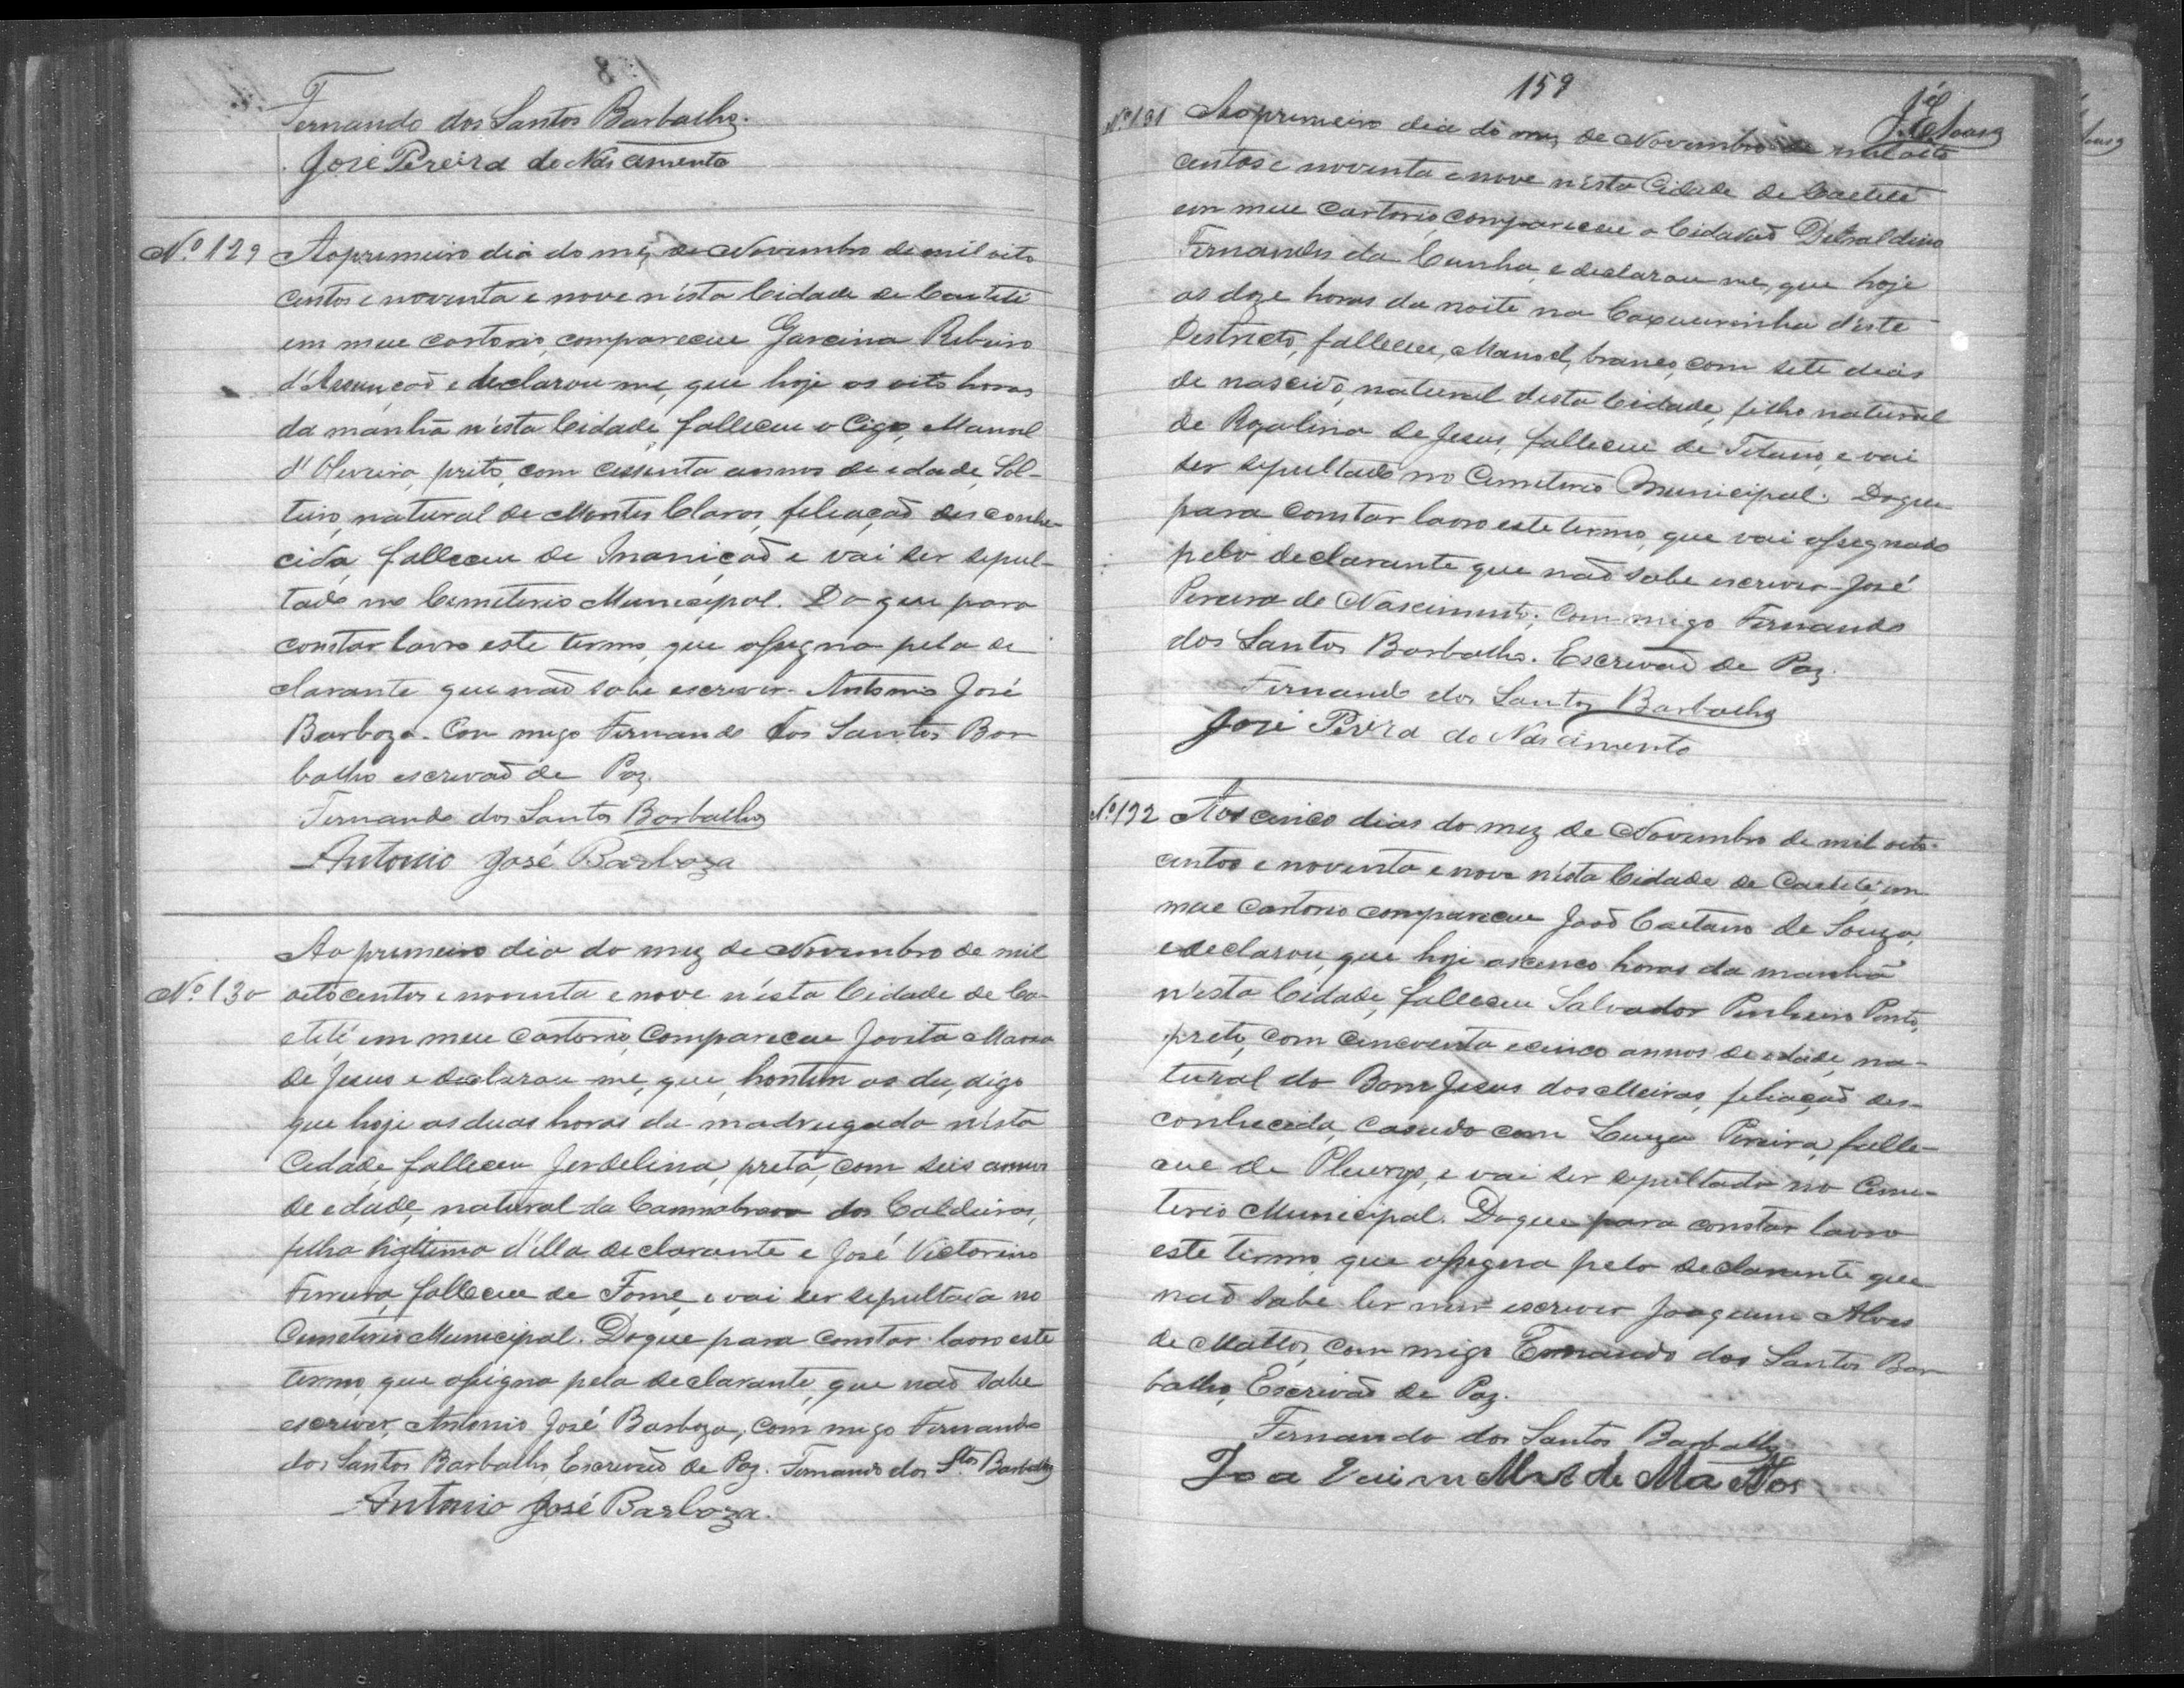 Fernando dos Santos Barbalho.
José Pereira do Nascimento
Nº 129 Ao primeiro dia do mez de Novembro de mil oito
centos e noventa e nove n'esta Cidade de Caetité
em meu cartorio, compareceu Garcina Ribeiro
d'Assunçaõ e declarou-me, que hoje as oito horas
da manhã n'esta Cidade, falleceu o Cigo, Manoel
d'Oliveira, prêto, com cessenta annos de edade, Sol-
teiro, natural de Montes Claros, feliaçaõ desconhe-
cida, falleceu de Inaniçaõ e vai ser sepul-
tado no Cemiterio Municipal. Do que para
constar lavro este termo, que assigna pela de
clarante que naõ sabe escrever. Antonio José
Barboza. Com migo Fernando dos Santos Bar
balho escrivaõ de Paz.
Fernando dos Santos Barbalho
Antonio José Barboza
Ao primeiro dia do mez de Novembro de mil
Nº 130 oitocentos e noventa e nove n'esta Cidade de Ca-
etité em meu Cartorio, Compareceu Jovita Maria
de Jesus e declarou-me, que, hontem as du, digo
que hoje as duas horas da madrugada n'esta
Cidade, falleceu Jerdelina, preta, com seis annos
de edade, natural da Cannabrava dos Caldeiras,
filha ligitima d'ella declarante e José Victorino
Ferreira, falleceu de Fome, e vai ser sepultada no
Cemeterio Municipal. Do que para constar lavro este
termo, que assigna pela declarante, que naõ sabe
escrever, Antonio José Barboza, com migo Fernando
dos Santos Barbalho, Escrivaõ de Paz. Fernando dos Stos Barbalho
Antonio José Barboza.
159
J. E. Souza
Nº 131 Ao primeiro dia do mez de Novembro de mil oito
centos e noventa e nove n'esta Cidade de Caetité
em meu Cartorio, compareceu o Cidadaõ
Fernandes da Cunha, e declarou-me, que hoje
as doze horas da noite na Caxueirinha d'este
Destricto, falleceu, Manoel, branco, com sete dias
de nascido, natural desta Cidade, filho natural
de Rozalina de Jesus, falleceu de Tetano, e vai
ser sepultado no Cemeterio Municipal. Do que
para constar lavro este termo, que vai assignado
pelo declarante que naõ sabe escrever José
Pereira do Nascimento; Com migo Fernando
dos Santos Barbalho. Escrivaõ de Paz.
Fernando dos Santos Barbalho
José Perera do Nascimento
Nº 132 Aos cinco dias do mez de Novembro de mil oito-
centos e noventa e nove n'esta Cidade de Caetité em
meu Cartorio compareceu Joaõ Caetano de Souza,
e declarou, que hoje as cinco horas da manhã
n'esta Cidade, falleceu Salvador Pinheiro Pinto,
preto, com cincoenta e cinco annos de edade, na-
tural do Bom Jesus dos Meiras, filiaçaõ des-
conhecida, Casado com Luiza Pereira, falle-
ceu de Pleuriz, e vai ser sepultado no Ceme-
terio Municipal. Do que para constar lavro
este termo que assigna pelo declarante que
naõ sabe ler nem escrever Joaquim Alves
de Mattos, com migo Fernando dos Santos Bar
balho, Escrivaõ de Paz.
Fernando dos Santos Barbalho
de Mattos